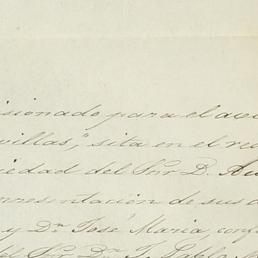 isionado para el
villas," sita en el re
iedad del Snr D.
presentación de sus
y Dn José Maria, conf
del Snr Dn J. Pablo